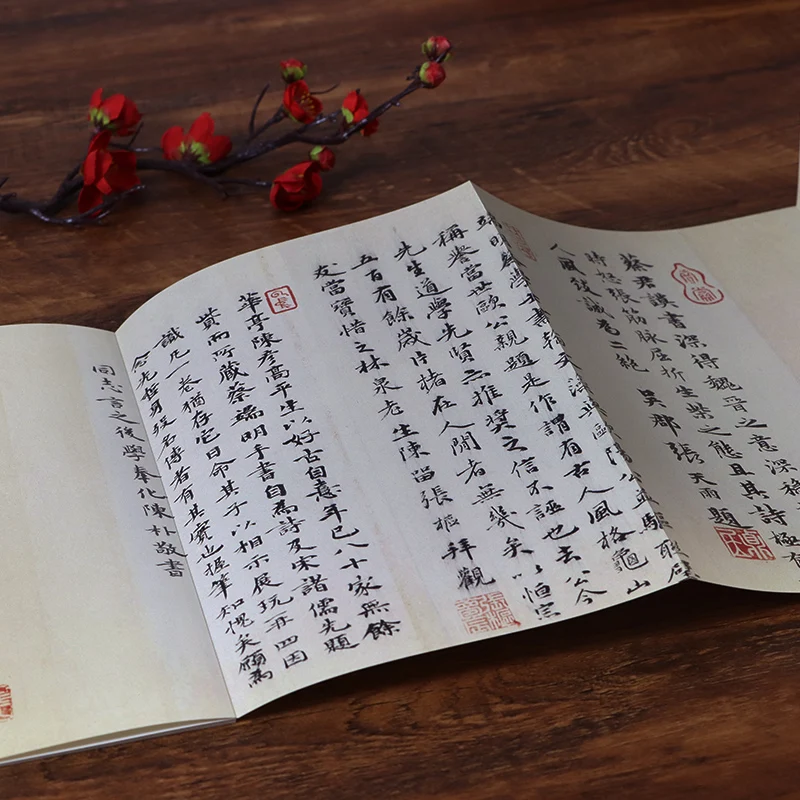 蔡君謨書深得魏晉之意深穩
時怒張筋脉屈折生柴之態且其詩極有
人風致誠為二絕 吳郡張天雨題
端明蔡學士書翰
稱譽當世歐公親題是作謂有古人風格龜山
先生道學先賢亦推奬之信不誣也去公今
五百有餘歲片楮在人間者無幾矣以恒宗
友當寶惜之林泉老生陳留張樞拜觀
華亭陳彥高平生以好古自意年已八十家無餘
貲而所藏蔡端明手書自為詩及宋諸儒先題
識凡一卷猶存它日命其子以相示展玩再四因
念先哲身後名傳者有其實也握筆知愧矣顧為
同志言之後學奉化陳朴敬書